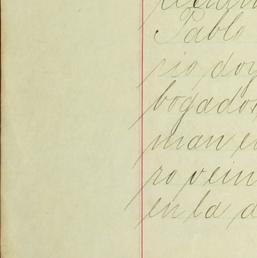 Pablo
rio, doy
bogado
man e
ro vein
en la a